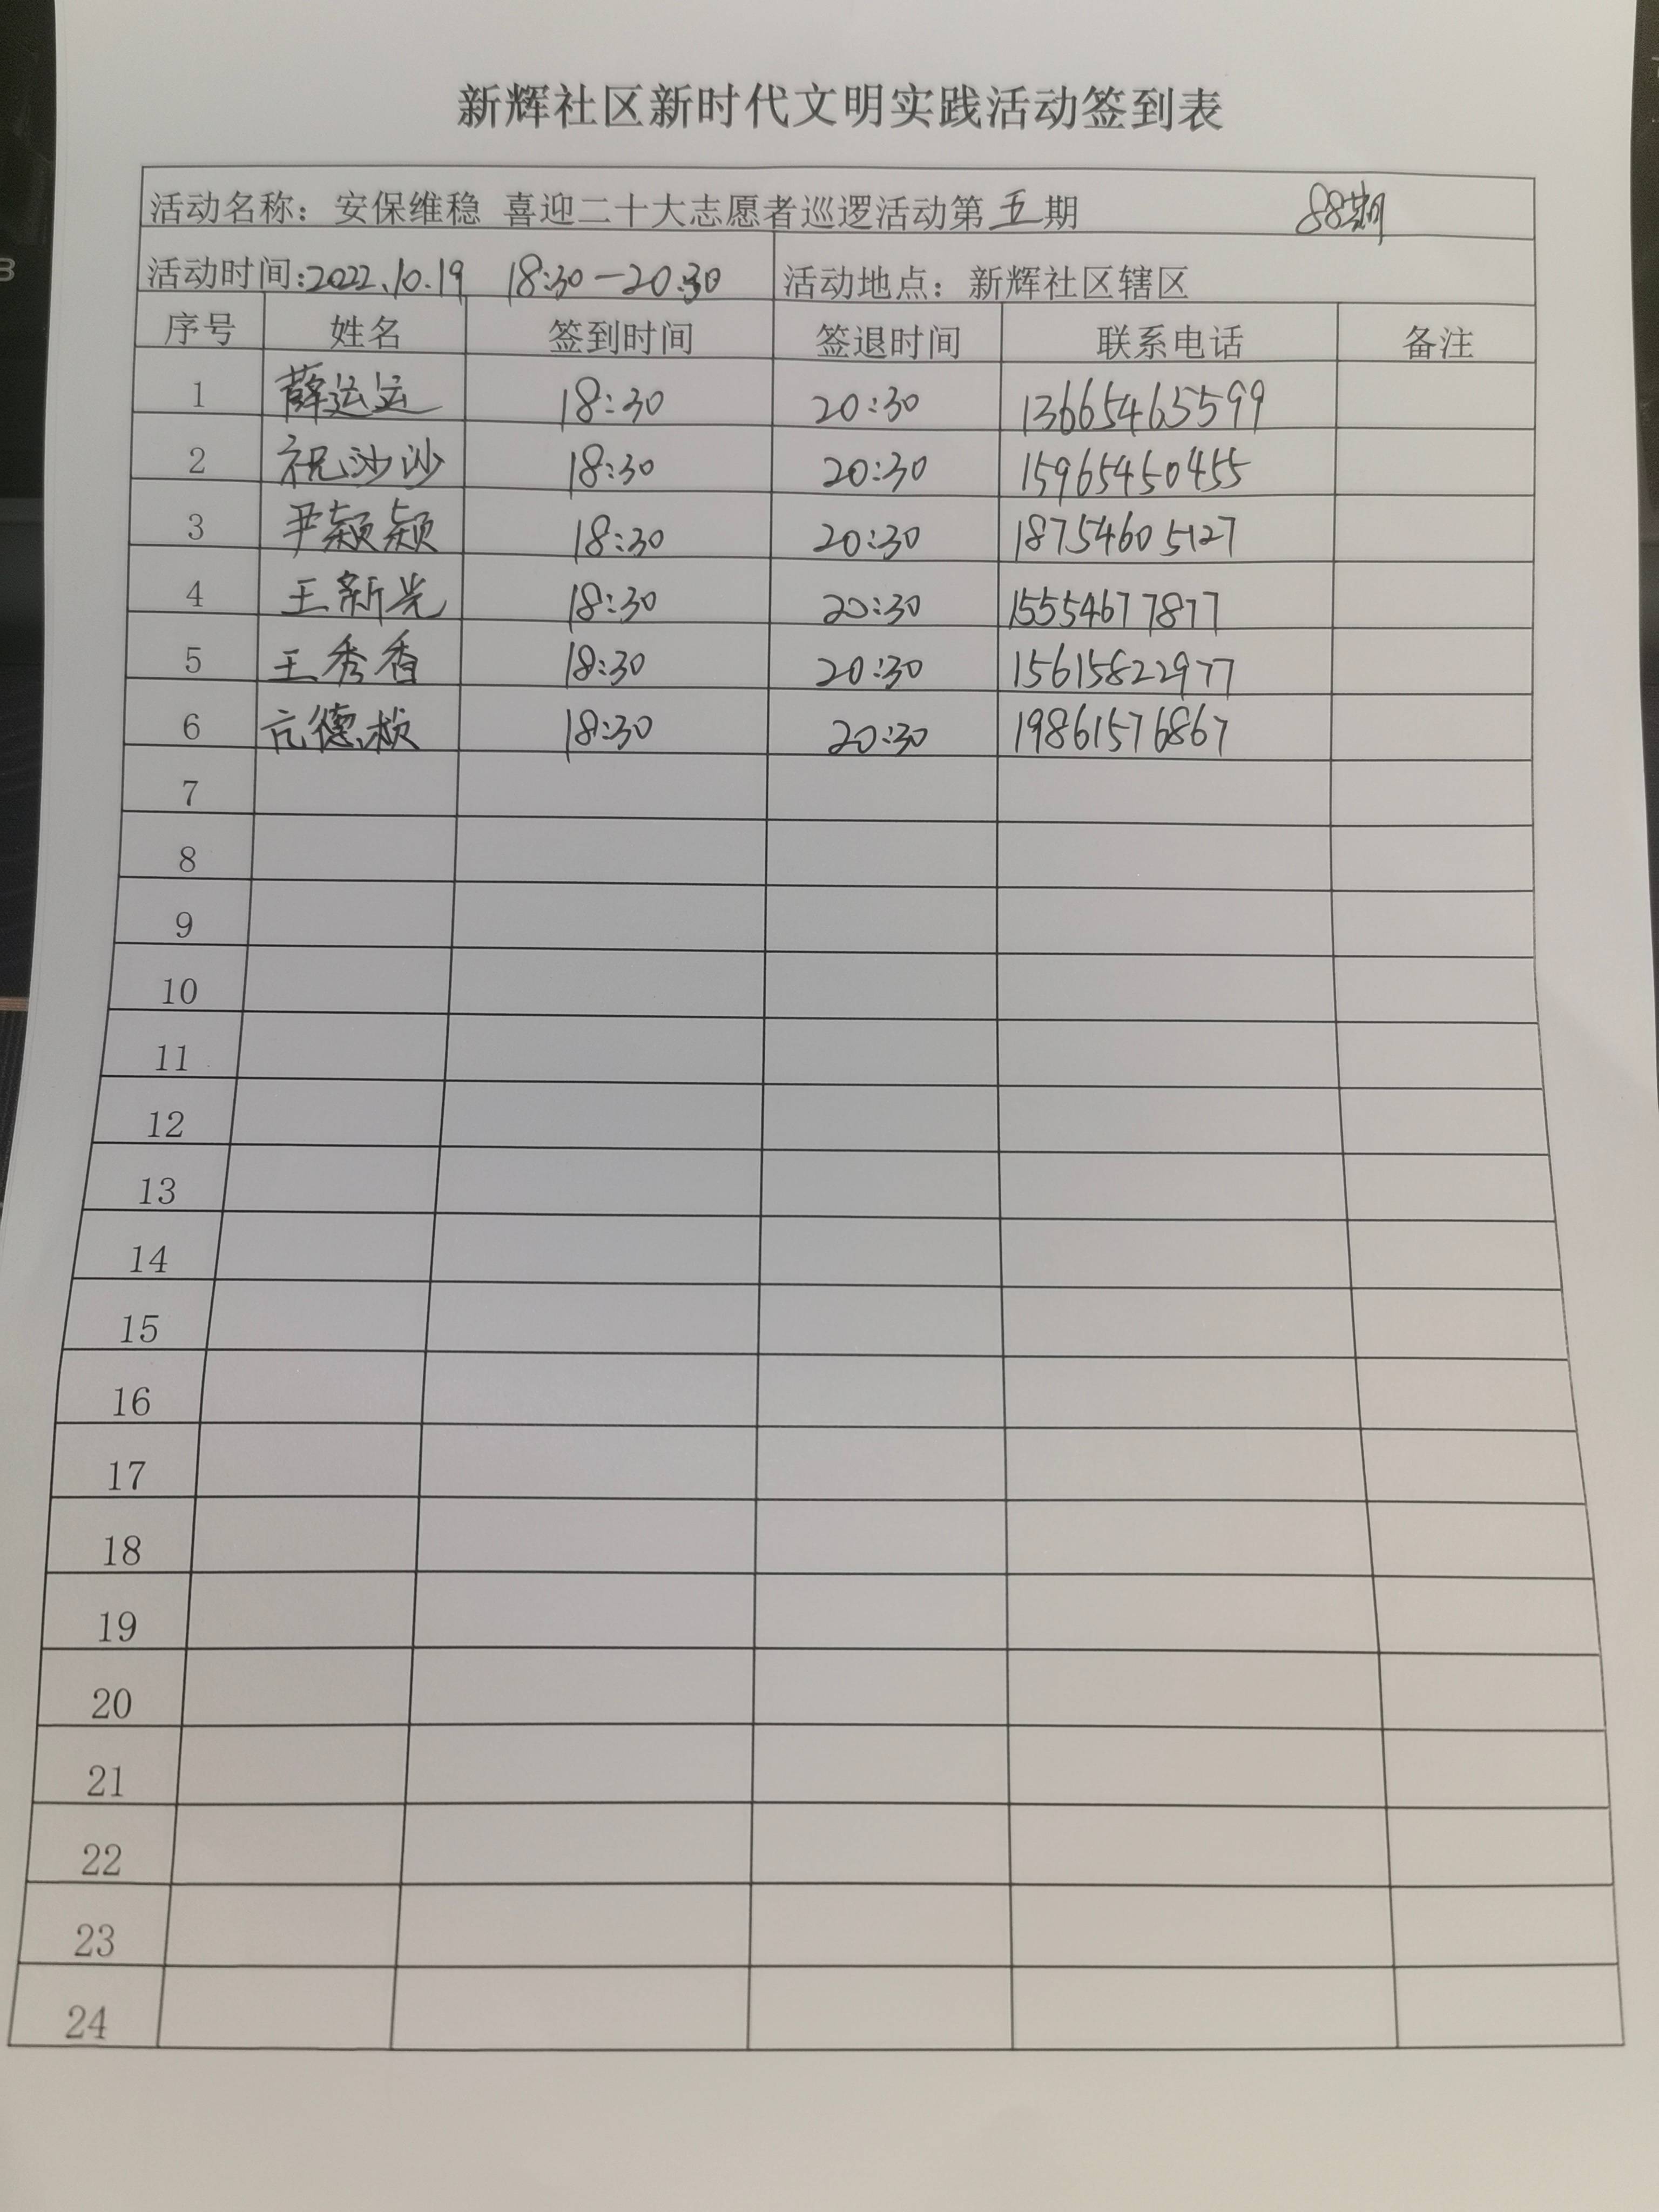 新辉社区新时代文明实践活动签到表
活动名称：安保维稳 喜迎二十大志愿者巡逻活动第五期 88期
活动时间:2022.10.19 18:30—20:30 活动地点：新辉社区辖区
序号 姓名 签到时间 签退时间 联系电话 备注
1 薛运运 18:30 20:30 13665465599
2 祝沙沙 18:30 20:30 15965450455
3 尹颖颖 18:30 20:30 18754605127
4 王新光 18:30 20:30 15554677877
5 王秀香 18:30 20:30 15615822977
6 亓德桢 18:30 20:30 19861576867
7
8
9
10
11
12
13
14
15
16
17
18
19
20
21
22
23
24